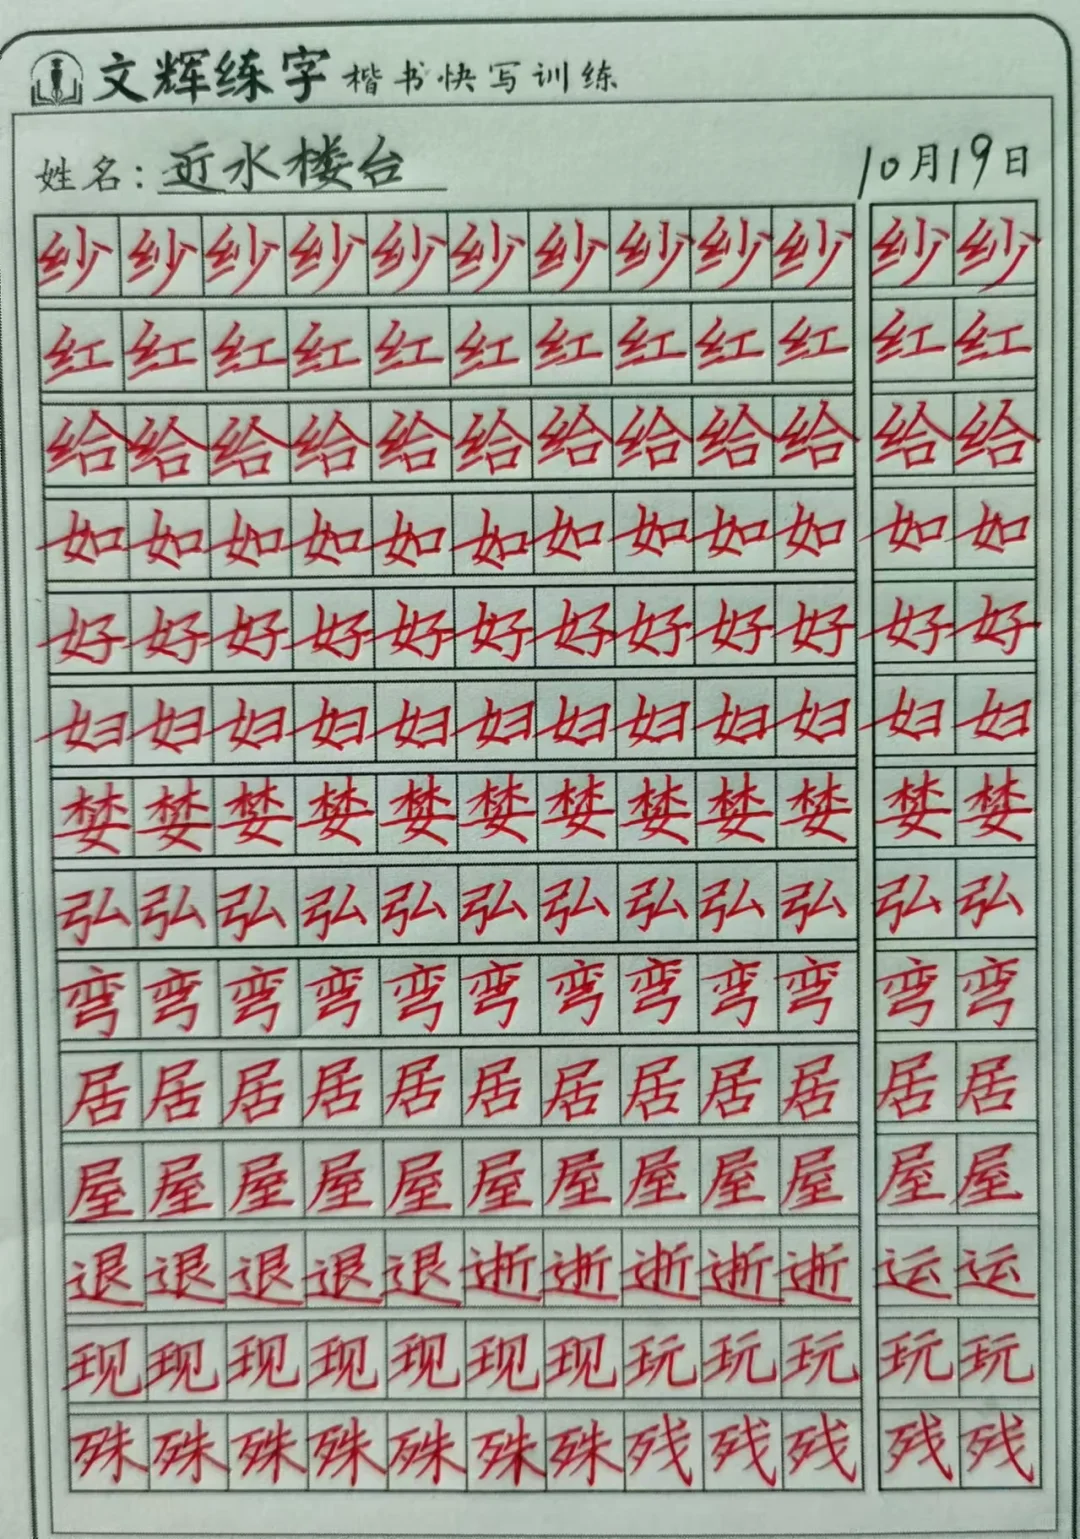 文辉练字 楷书快写训练
姓名：近水楼台 10月19日
纱纱纱纱纱纱纱纱纱纱 纱纱
红红红红红红红红红红 红红
给给给给给给给给给给 给给
如如如如如如如如如如 如如
好好好好好好好好好好 好好
妇妇妇妇妇妇妇妇妇妇 妇妇
婪婪婪婪婪婪婪婪婪婪 婪婪
弘弘弘弘弘弘弘弘弘弘 弘弘
弯弯弯弯弯弯弯弯弯弯 弯弯
居居居居居居居居居居 居居
屋屋屋屋屋屋屋屋屋屋 屋屋
退退退退退逝逝逝逝逝 运运
现现现现现现现玩玩玩 玩玩
殊殊殊殊殊殊殊残残残 残残